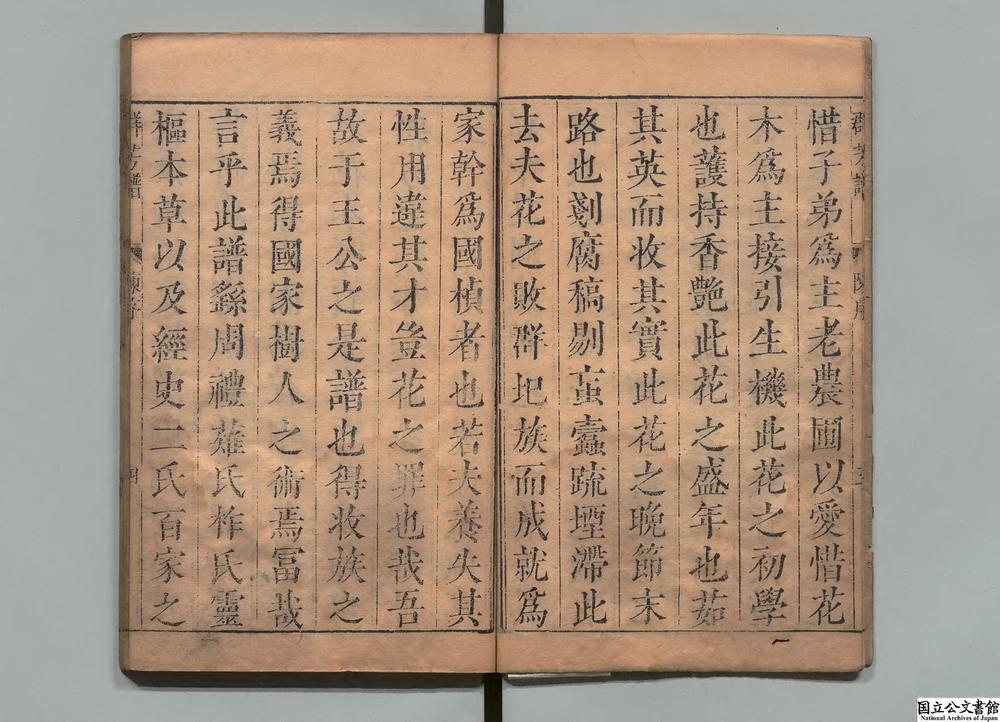 惜子弟爲主老農圃以愛惜花
木爲主接引生機此花之初學
也護持香艷此花之盛年也茹
其英而收其實此花之晚節末
路也剗腐稿剔蟲蠹疏堙滯此
去夫花之敗群圯族而成就爲
家幹爲國楨者也若夫養失其
性用違其才豈花之罪也哉吾
故于王公之是譜也得收族之
義焉得國家樹人之術焉冨哉
言乎此譜繇周禮薙氏柞氏靈
樞本草以及經史二氏百家之
群芳譜
陳序
三
群芳譜
陳序
四
国立公文書館
National Archives of Japan